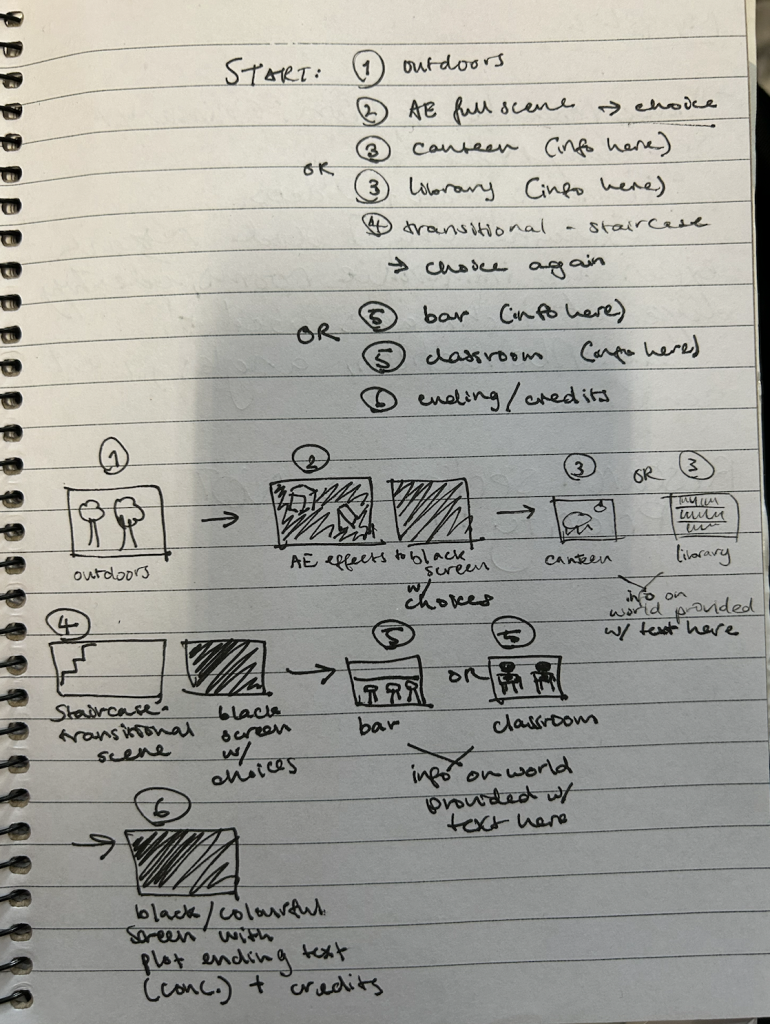 START: ① outdoors
② AE full scene → choice
③ canteen (info here)
OR
③ library (info here)
④ transitional - staircase
→ choice again
OR ⑤ bar (info here)
⑤ classroom (info here)
⑥ ending/credits
①
outdoors
→
②
AE effects to black screen
w/ choices
→
③
canteen
OR
③
library
info on
world provided
w/ text here
④
Staircase-
transitional
scene
black
screen
w/
choices
→
⑤
bar
OR
⑤
classroom
info on world
provided w/
text here
→
⑥
black/colourful
screen with
plot ending text
(conc.) + credits